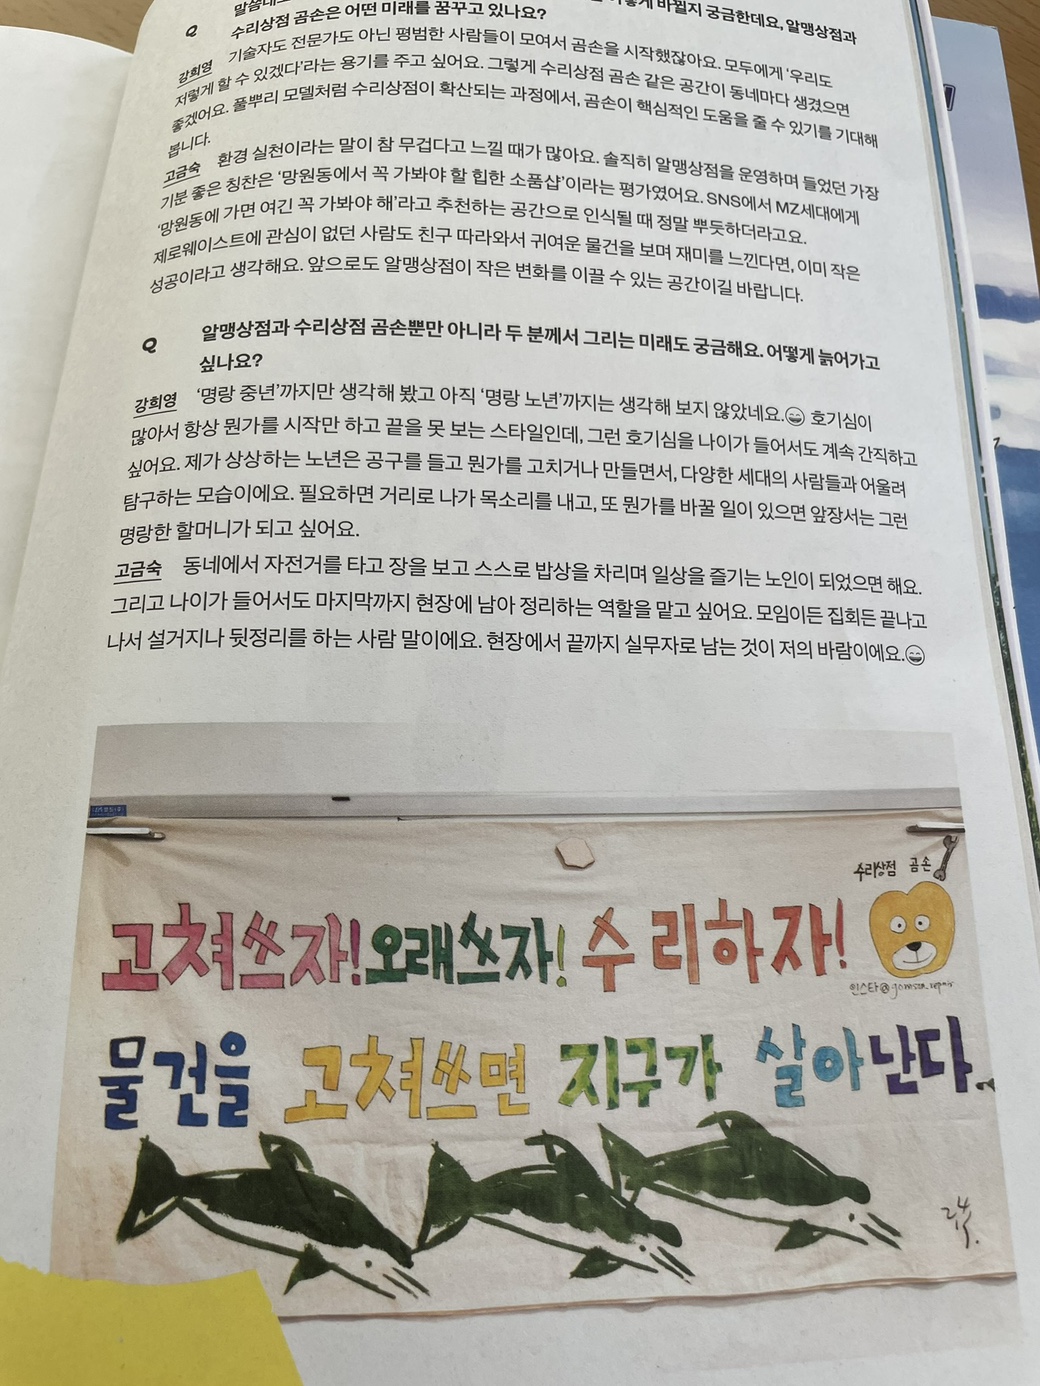 어떻게 바뀔지 궁금한데요, 알맹상점과
Q 수리상점 곰손은 어떤 미래를 꿈꾸고 있나요?
강희영 기술자도 전문가도 아닌 평범한 사람들이 모여서 곰손을 시작했잖아요. 모두에게 ‘우리도
저렇게 할 수 있겠다’라는 용기를 주고 싶어요. 그렇게 수리상점 곰손 같은 공간이 동네마다 생겼으면
좋겠어요. 풀뿌리 모델처럼 수리상점이 확산되는 과정에서, 곰손이 핵심적인 도움을 줄 수 있기를 기대해
봅니다.
고금숙 환경 실천이라는 말이 참 무겁다고 느낄 때가 많아요. 솔직히 알맹상점을 운영하며 들었던 가장
기분 좋은 칭찬은 ‘망원동에서 꼭 가봐야 할 힙한 소품샵’이라는 평가였어요. SNS에서 MZ세대에게
‘망원동에 가면 여긴 꼭 가봐야 해’라고 추천하는 공간으로 인식될 때 정말 뿌듯하더라고요.
제로웨이스트에 관심이 없던 사람도 친구 따라와서 귀여운 물건을 보며 재미를 느낀다면, 이미 작은
성공이라고 생각해요. 앞으로도 알맹상점이 작은 변화를 이끌 수 있는 공간이길 바랍니다.
Q 알맹상점과 수리상점 곰손뿐만 아니라 두 분께서 그리는 미래도 궁금해요. 어떻게 늙어가고
싶나요?
강희영 ‘명랑 중년’까지만 생각해 봤고 아직 ‘명랑 노년’까지는 생각해 보지 않았네요.😄 호기심이
많아서 항상 뭔가를 시작만 하고 끝을 못 보는 스타일인데, 그런 호기심을 나이가 들어서도 계속 간직하고
싶어요. 제가 상상하는 노년은 공구를 들고 뭔가를 고치거나 만들면서, 다양한 세대의 사람들과 어울려
탐구하는 모습이에요. 필요하면 거리로 나가 목소리를 내고, 또 뭔가를 바꿀 일이 있으면 앞장서는 그런
명랑한 할머니가 되고 싶어요.
고금숙 동네에서 자전거를 타고 장을 보고 스스로 밥상을 차리며 일상을 즐기는 노인이 되었으면 해요.
그리고 나이가 들어서도 마지막까지 현장에 남아 정리하는 역할을 맡고 싶어요. 모임이든 집회든 끝나고
나서 설거지나 뒷정리를 하는 사람 말이에요. 현장에서 끝까지 실무자로 남는 것이 저의 바람이에요.😄
수리상점 곰손
고쳐쓰자! 오래쓰자! 수리하자!
인스타@gomson_repair
물건을 고쳐쓰면 지구가 살아난다.